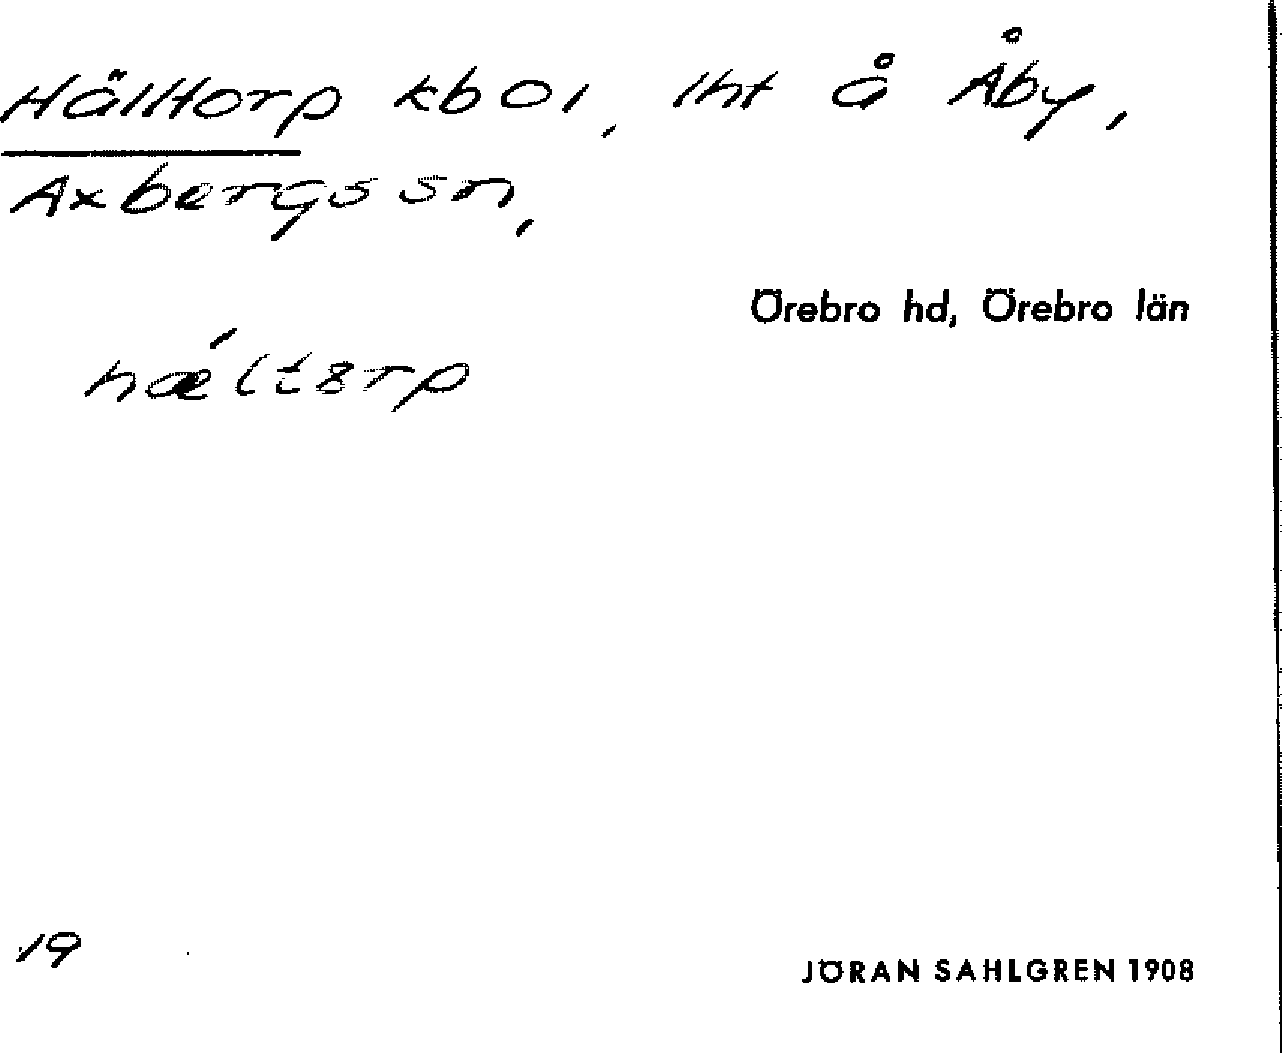 Hälltorp kbol, lht å Åby,
Axbergs sn,
Örebro hd, Örebro län
hǽltȣrp
19
JÖRAN SAHLGREN 1908